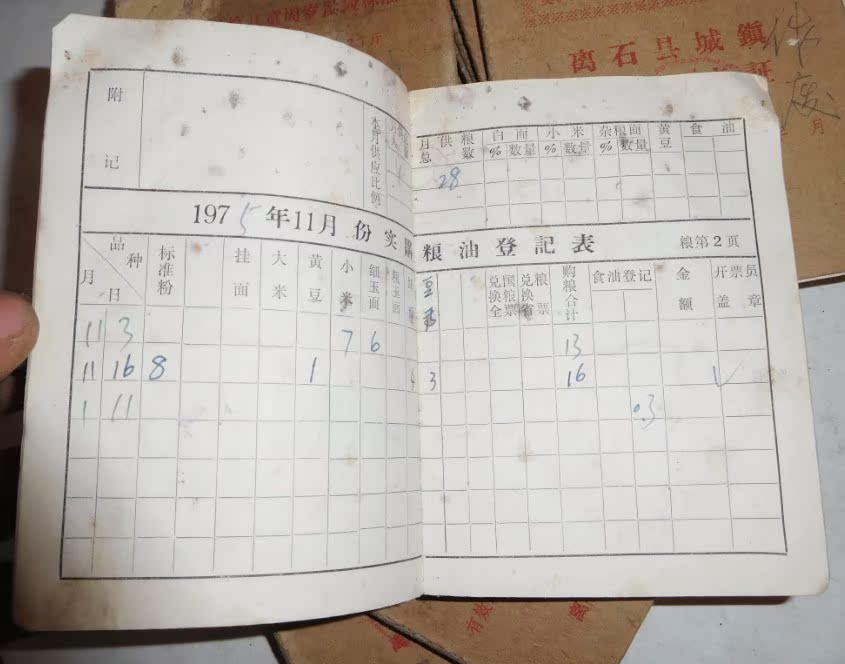 离石县城鎮
作
废
月
附
记
本月供应比例
月总供粮数
白面
% 数量
小米
% 数量
杂粮面
% 数量
黄豆
食油
28
1975年11月份实
粮油登記表
粮第2页
品种
月 日
标准粉
挂面
大米
黄豆
小米
细玉面
粗玉面
豆
兑换全国粮票
兑换省粮票
购粮合计
食油登记
金额
开票员盖章
11 3 7 6 13
11 16 8 1 4 3 16
1 11 0.3